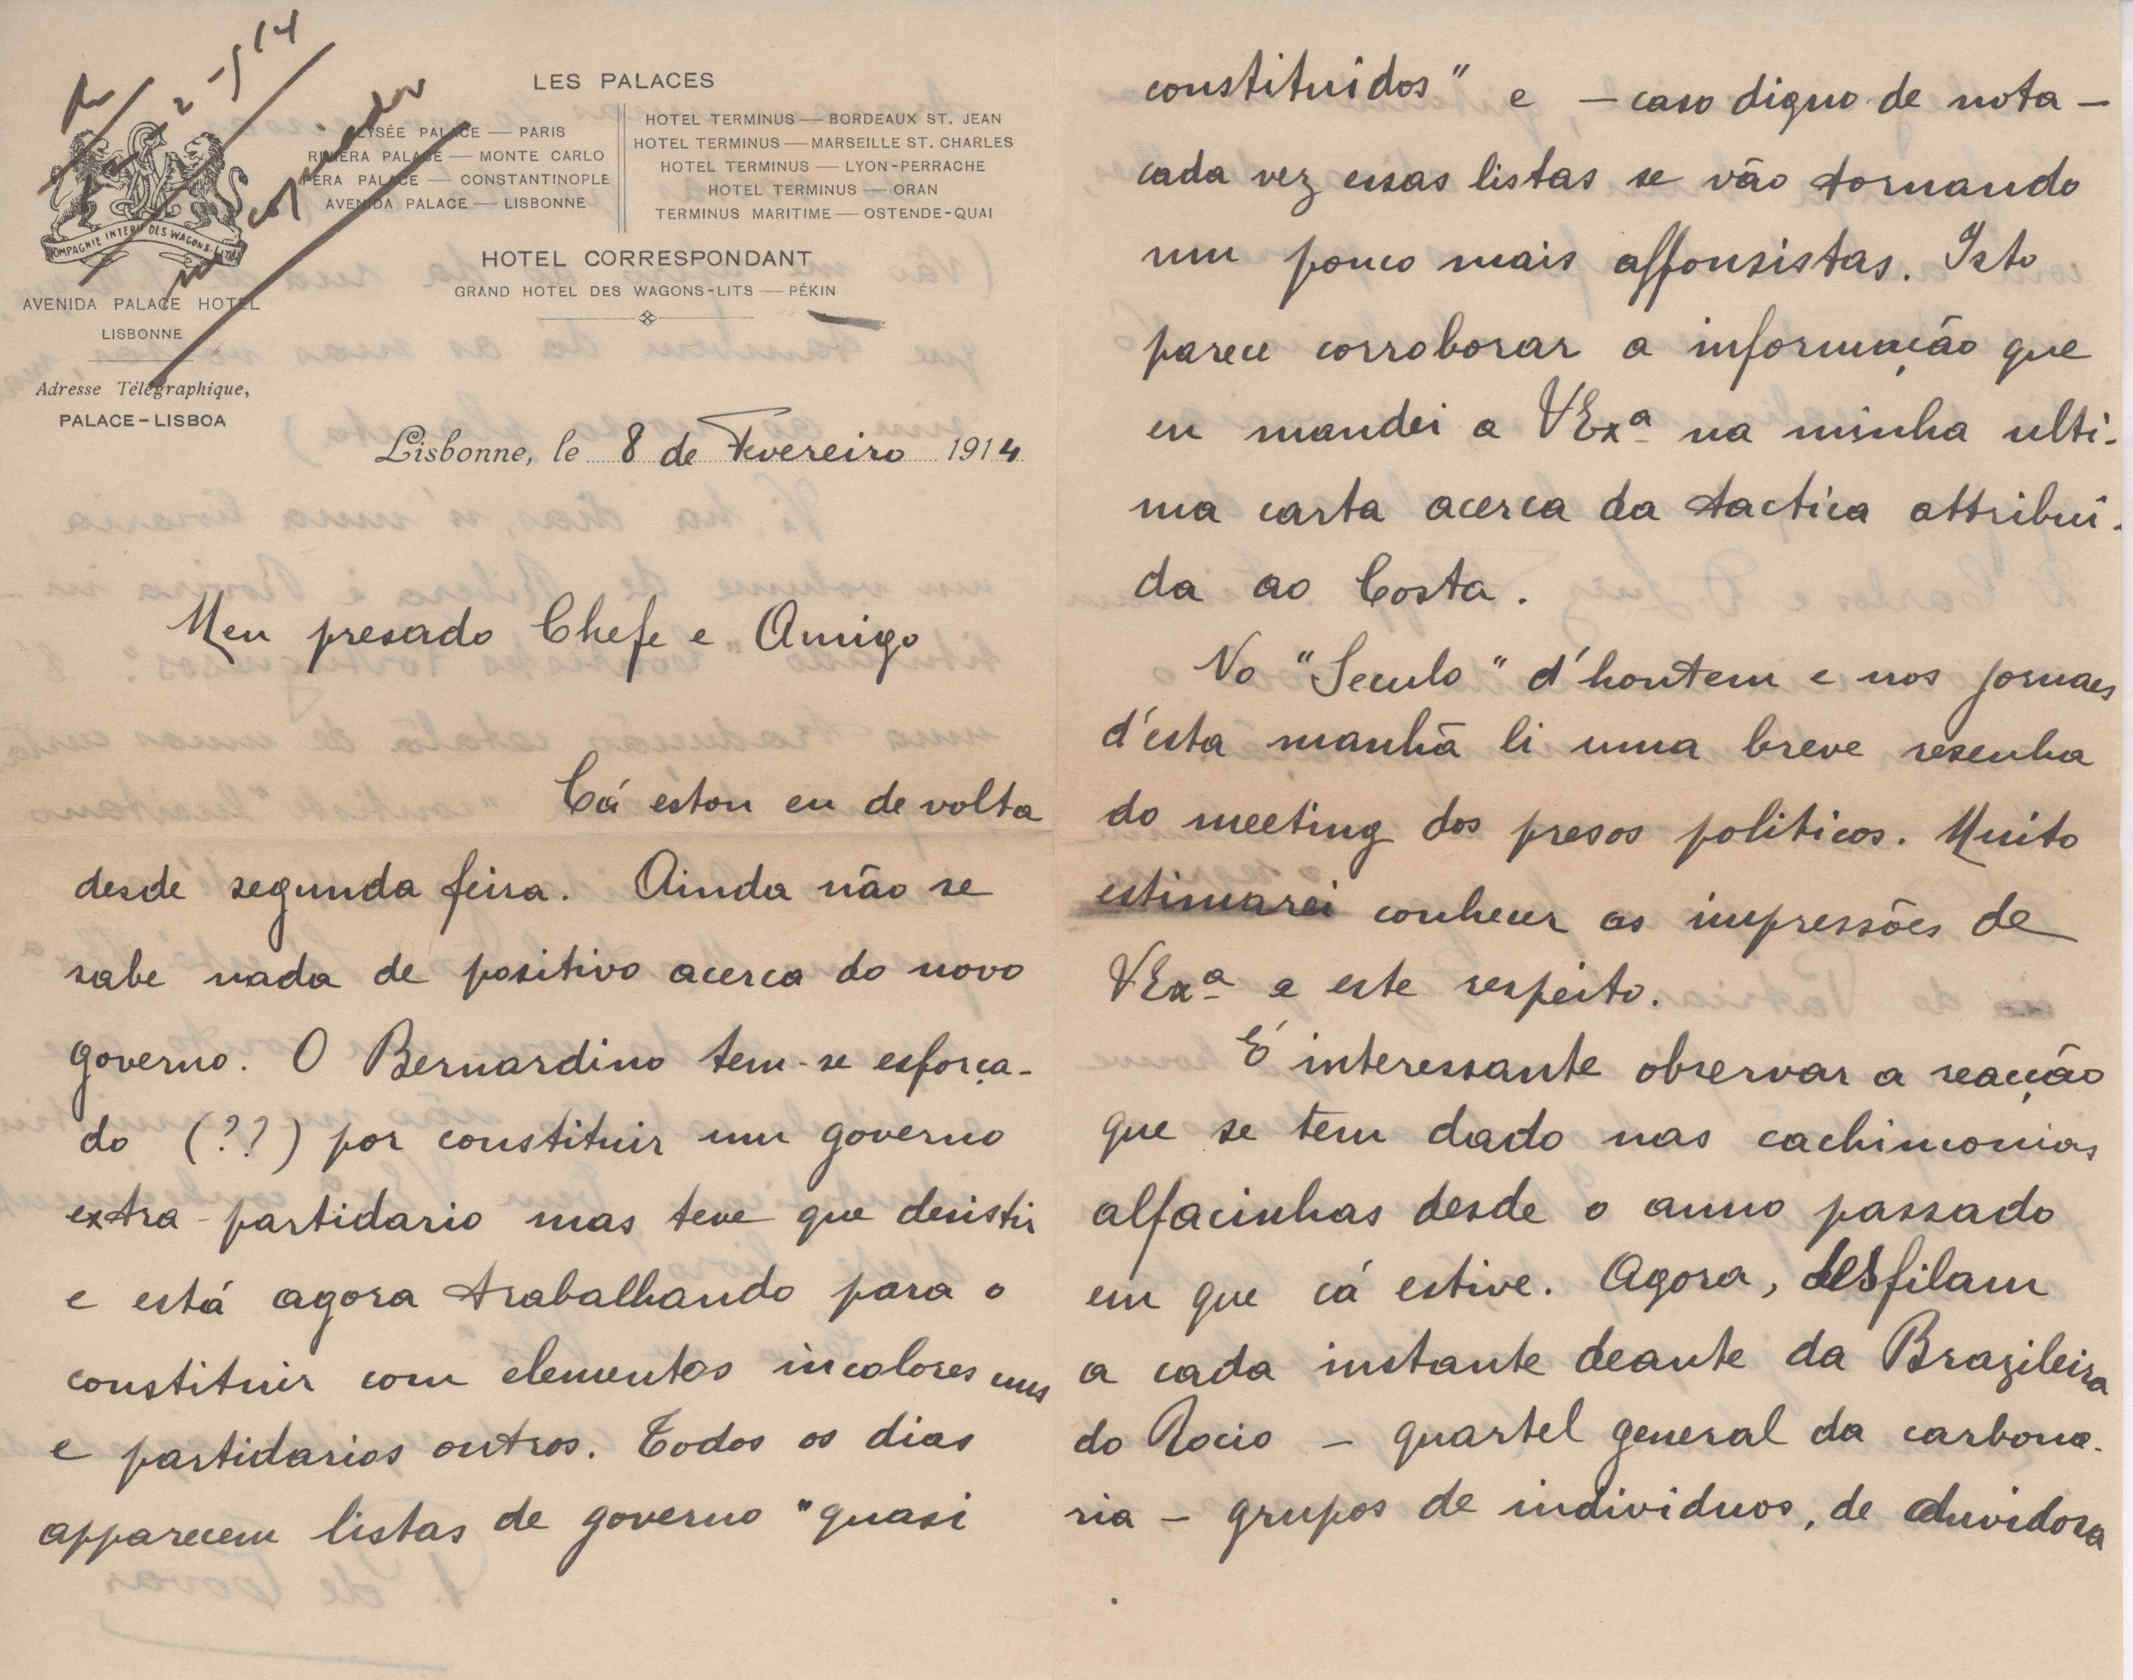 2-5-14
copiador
COMPAGNIE INTERLE DES WAGONS-LITS
LES PALACES
ELYSÉE PALACE — PARIS
RIVIERA PALACE — MONTE CARLO
PERA PALACE — CONSTANTINOPLE
AVENIDA PALACE — LISBONNE
HOTEL TERMINUS — BORDEAUX ST. JEAN
HOTEL TERMINUS — MARSEILLE ST. CHARLES
HOTEL TERMINUS — LYON-PERRACHE
HOTEL TERMINUS — ORAN
TERMINUS MARITIME — OSTENDE-QUAI
HOTEL CORRESPONDANT
GRAND HOTEL DES WAGONS-LITS — PÉKIN
AVENIDA PALACE HOTEL
LISBONNE
Adresse Télégraphique,
PALACE-LISBOA
Lisbonne, le 8 de Fevereiro 1914
Meu presado Chefe e Amigo
Cá estou eu de volta
desde segunda feira. Ainda não se
sabe nada de positivo acerca do novo
governo. O Bernardino tem-se esforça-
do (??) por constituir um governo
extra-partidario mas teve que desistir
e está agora trabalhando para o
constituir com elementos incolores uns
e partidarios outros. Todos os dias
apparecem listas de governo "quasi
constituidos" e — caso digno de nota —
cada vez essas listas se vão tornando
um pouco mais affonsistas. Isto
parece corroborar a informação que
eu mandei a VExª na minha ulti-
ma carta acerca da tactica attribui-
da ao Costa.
No "Seculo" d'hontem e nos jornaes
d'esta manhã li uma breve resenha
do meeting dos presos politicos. Muito
estimarei conhecer as impressões de
VExª a este respeito.
É interessante observar a reacção
que se tem dado nas cachimonias
alfacinhas desde o anno passado
em que cá estive. Agora, desfilam
a cada instante deante da Brazileira
do Rocio — quartel general da carbona-
ria — grupos de individuos, de duvidosa